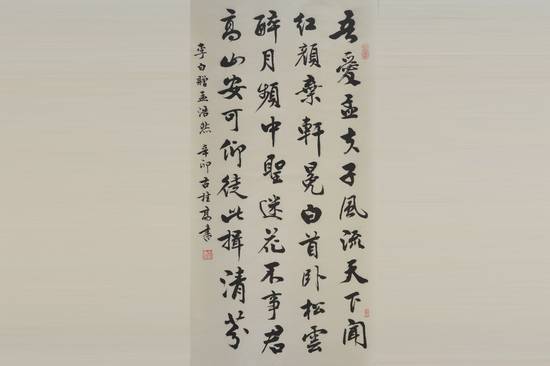 吾愛孟夫子風流天下聞
红顔棄軒冕白首卧松雲
醉月頻中聖迷花不事君
高山安可仰徒此揖清芬
李白贈孟浩然 辛卯古桂高書